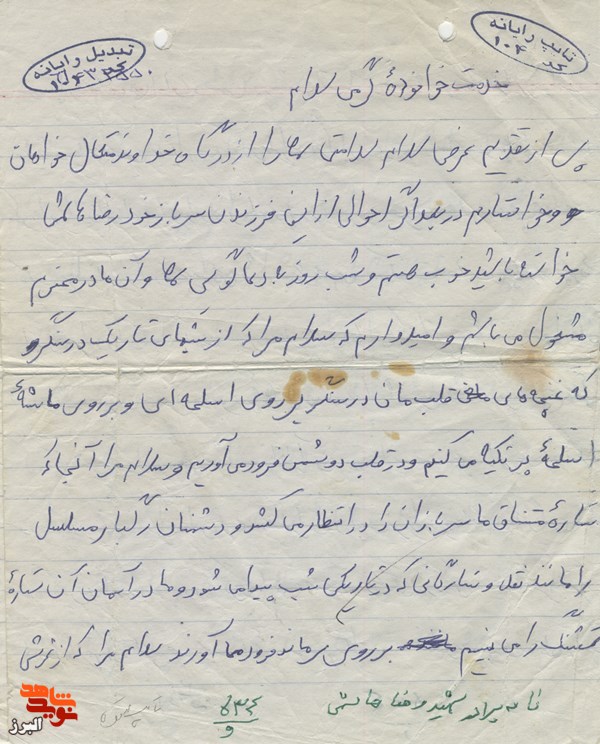 تبدیل رایانه
تایپ رایانه
کد ۱۰۴
خدمت خانواده گرمی سلام
پس از تقدیم عرض سلام سلامتی شما را از درگاه خداوند متعال خواهان
و خواستارم در بعد اگر احوالی از این فرزندان سرباز خود رضا هاشمی
خواسته باشید خوب هستم و شب روز به دعاگوئی شما و آن مادر محترم
مشغول می باشم و امیدوارم که سلام مرا که از شبهای تاریک در سنگر
که غنچه های قلب مان در سنگر بر روی اسلحه ای و بر روی ماشهٔ
اسلحهٔ پر تکیه می کنیم و در قلب دوشمن فرود می آوریم و سلام مرا آنجا که
ستارهٔ مشتاق ما سربازان را در انتظار می کشد و دشمنان رگبار مسلسل
را مانند نقل و ستارگانی که در تاریکی شب پیدا می شود و ما در آسمان آن ستارهٔ
قشنگ را می بینیم بر روی سر ما ند فرود می آورند سلام مرا که از ترشی
نامه برادر شهید رضا هاشمی
۵۳۴
۹
نوید شاهد
البرز